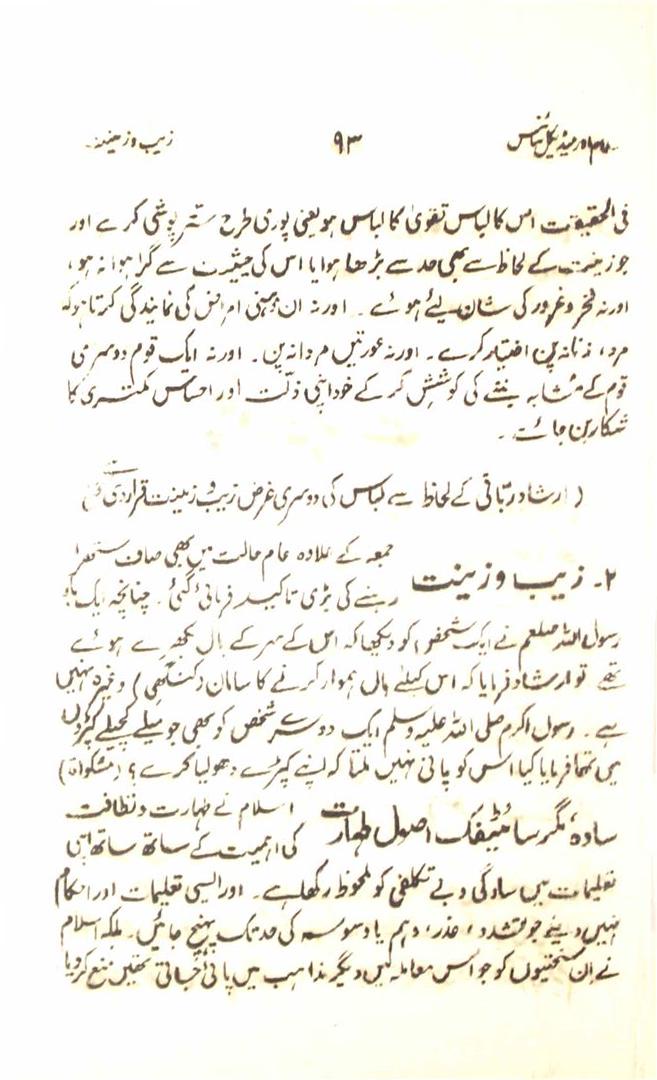 اسلام اور میڈیکل سائنس ۹۳ زیب وزینت
فی الحقیقت اس کا لباس تقویٰ کا لباس ہو یعنی پوری طرح ستر پوشی کرے اور
جو زینت کے لحاظ سے بھی حد سے بڑھا ہوا یا اس کی حیثیت سے گرا ہوا نہ ہو،
اور نہ فخر و غرور کی شان لیئے ہوئے ۔ اور نہ ان ذہنی امراض کی نمایندگی کرتا ہو کہ
مرد، زنانہ پن اختیار کرے۔ اور نہ عورتیں مردانہ پن۔ اور نہ ایک قوم دوسری
قوم کے مشابہ بننے کی کوشش کر کے خود اپنی ذلّت اور احساس کمتری کا
شکار بن جائے ۔
(ارشاد ربّانی کے لحاظ سے لباس کی دوسری غرض زیب و زینت قرار دی گئی ہے)
۲۔ زیب و زینت جمعہ کے علاوہ عام حالت میں بھی صاف ستھرا
رہنے کی بڑی تاکید فرمائی گئی ۔ چنانچہ ایک بار
رسول اللہ صلعم نے ایک شخص کو دیکھا کہ اس کے سر کے بال بکھرے ہوئے
تھے تو ارشاد فرمایا کہ اس کیلئے بال ہموار کرنے کا سامان (کنگھی) وغیرہ نہیں
ہے ۔ رسول اکرم صلی اللہ علیہ وسلم ایک دوسرے شخص کو بھی جو میلے کچیلے کپڑوں
میں تھا فرمایا کیا اس کو پانی نہیں ملتا کہ اپنے کپڑے دھو لیا کرے ؟ (مشکواۃ)
سادہ مگر سائنٹیفک اصول طہارت اسلام نے طہارت و نظافت
کی اہمیت کے ساتھ ساتھ اپنی
تعلیمات میں سادگی و بے تکلفی کو ملحوظ رکھا ہے ۔ اور ایسی تعلیمات اور احکام
نہیں دیئے جو تشدد، عذر، وہم یا وسوسہ کی حد تک پہنچ جائیں۔ بلکہ اسلام
نے ان سختیوں کو جو اس معاملہ میں دیگر مذاہب میں پائی جاتی تھیں منع کر دیا